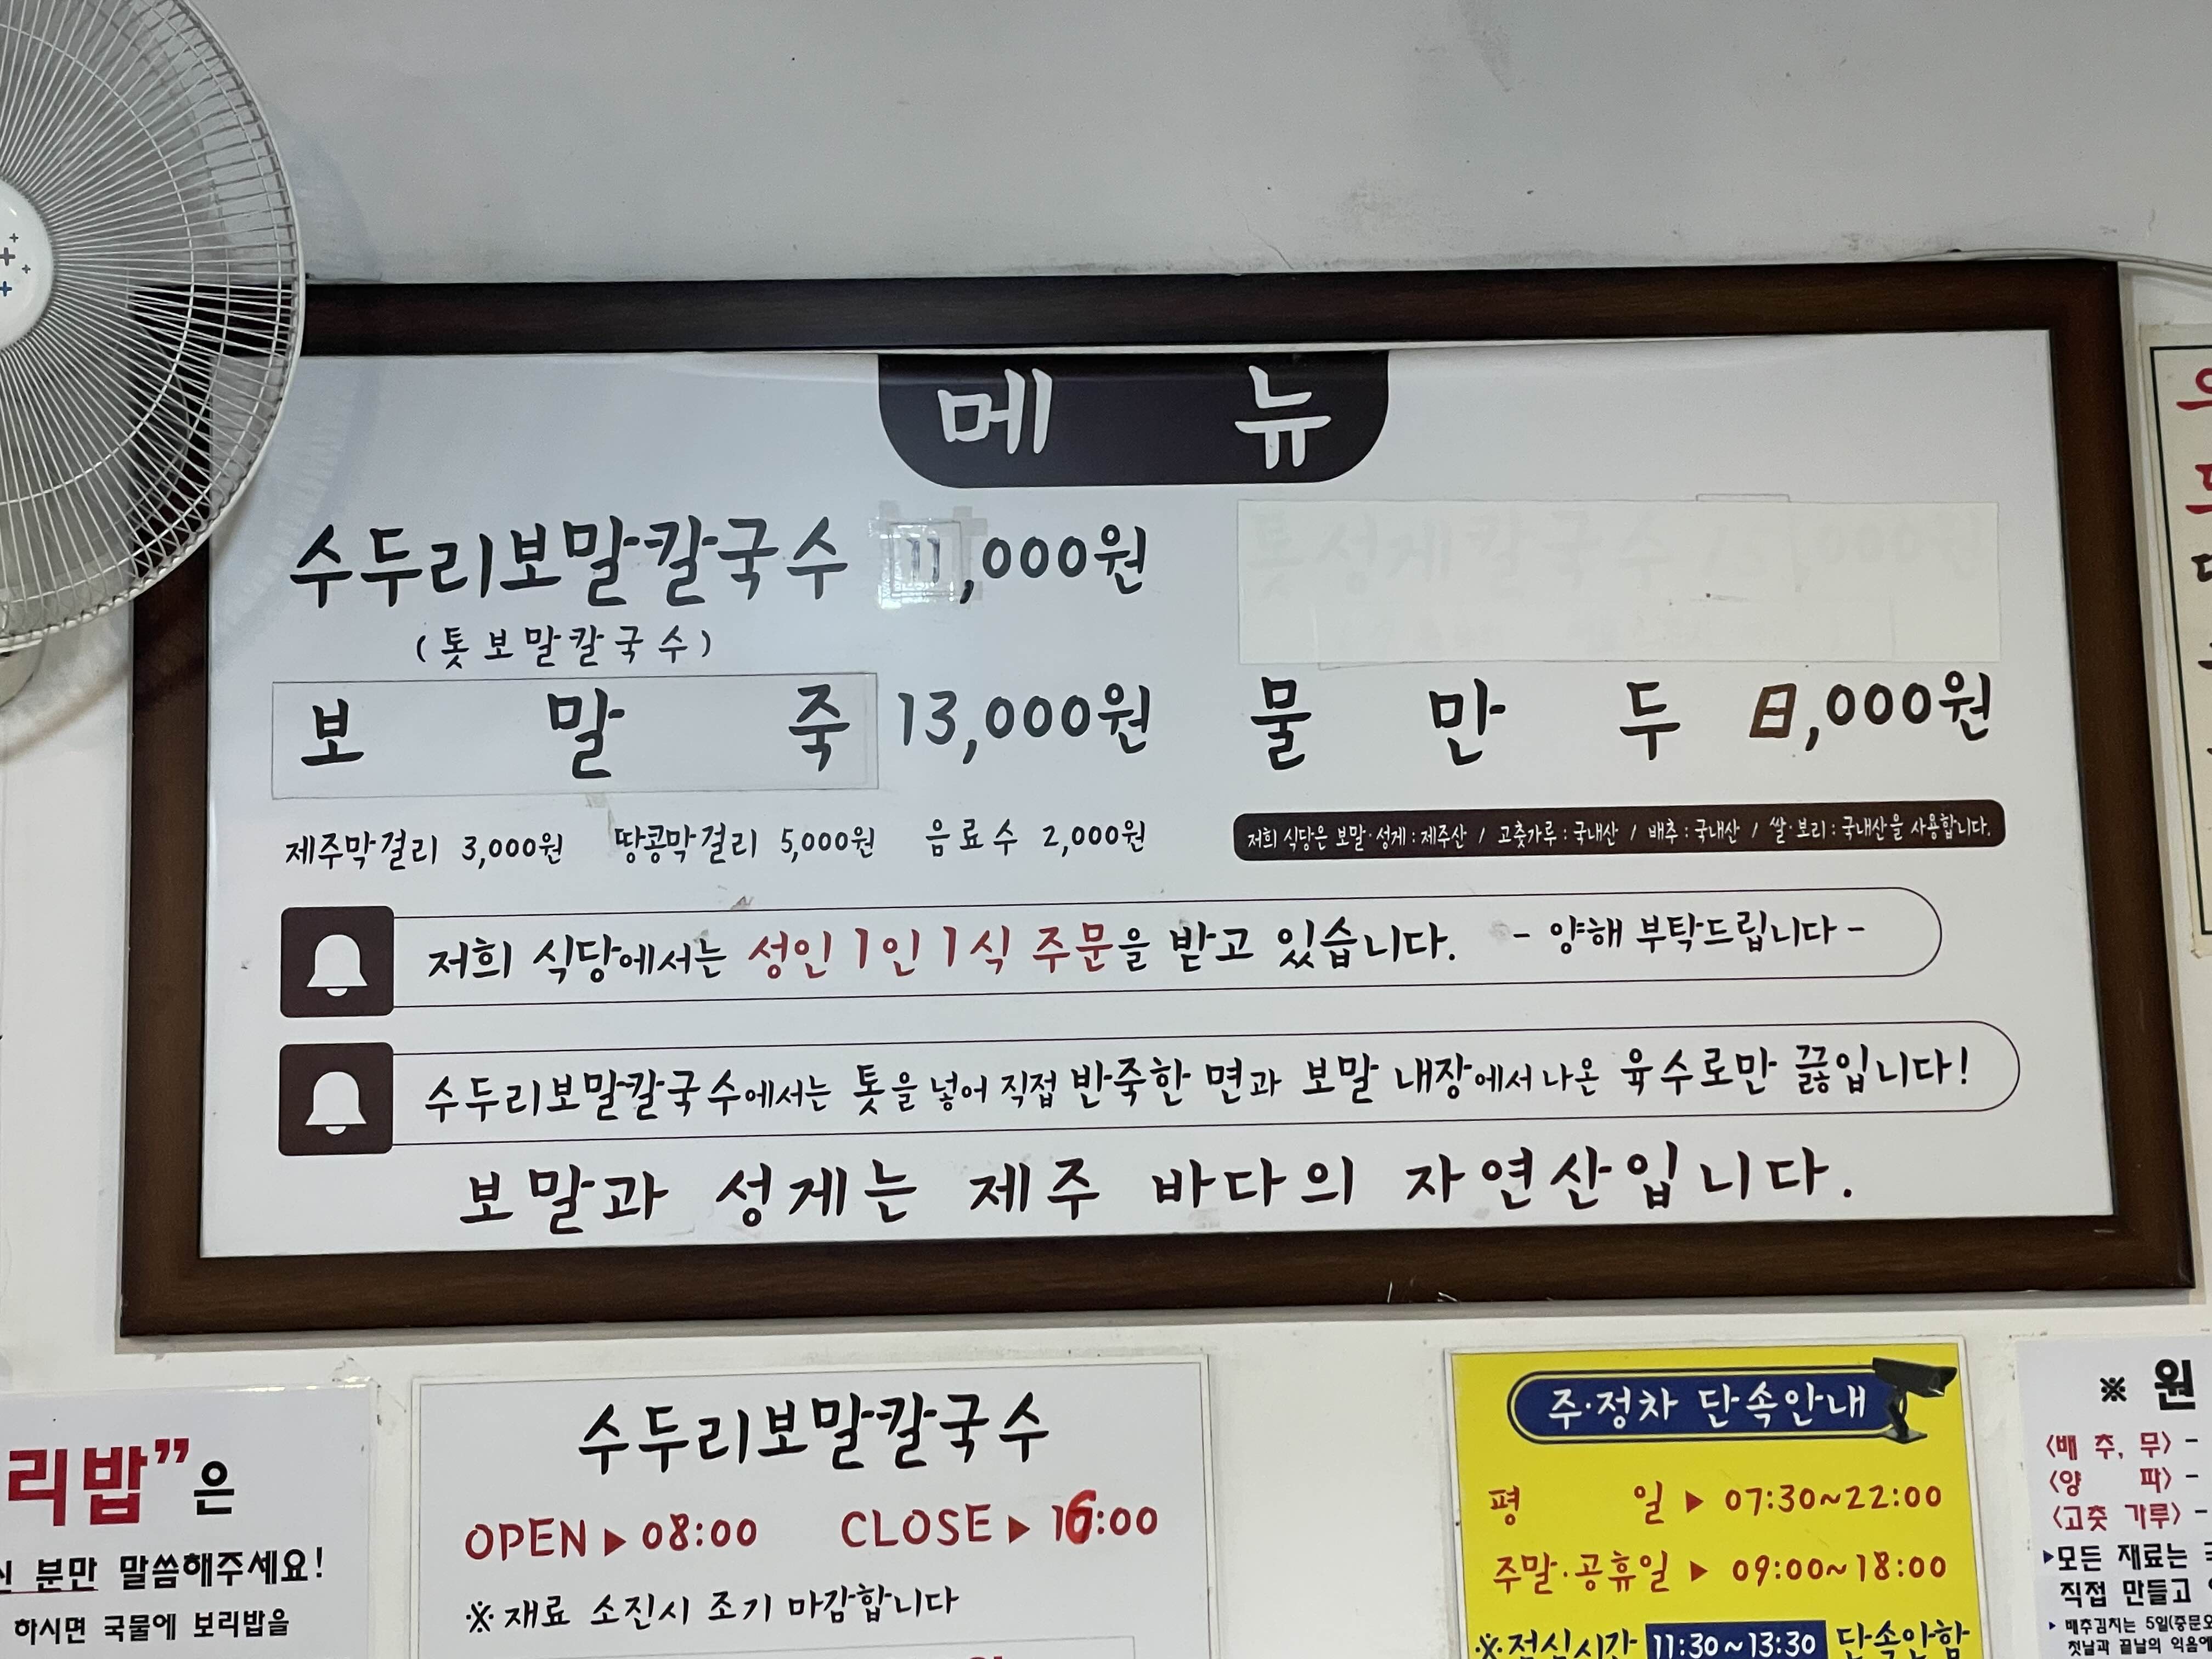 메 뉴
수두리보말칼국수 11,000원
(톳보말칼국수)
보 말 죽 13,000원
물 만 두 8,000원
제주막걸리 3,000원 땅콩막걸리 5,000원 음료수 2,000원
저희 식당은 보말·성게 : 제주산 / 고춧가루 : 국내산 / 배추 : 국내산 / 쌀·보리 : 국내산을 사용합니다.
저희 식당에서는 성인 1인 1식 주문을 받고 있습니다. - 양해 부탁드립니다 -
수두리보말칼국수에서는 톳을 넣어 직접 반죽한 면과 보말 내장에서 나온 육수로만 끓입니다!
보말과 성게는 제주 바다의 자연산입니다.
리밥”은
분만 말씀해주세요!
하시면 국물에 보리밥을
수두리보말칼국수
OPEN ▶ 08:00 CLOSE ▶ 16:00
※ 재료 소진시 조기 마감합니다
주·정차 단속안내
평 일 ▶ 07:30~22:00
주말·공휴일 ▶ 09:00~18:00
※점심시간 11:30~13:30 단속안함
※ 원
<배 추, 무> -
<양 파> -
<고춧 가루> -
▶모든 재료는
직접 만들고
▶ 배추김치는 5일(중문오
첫날과 끝날의 익음에